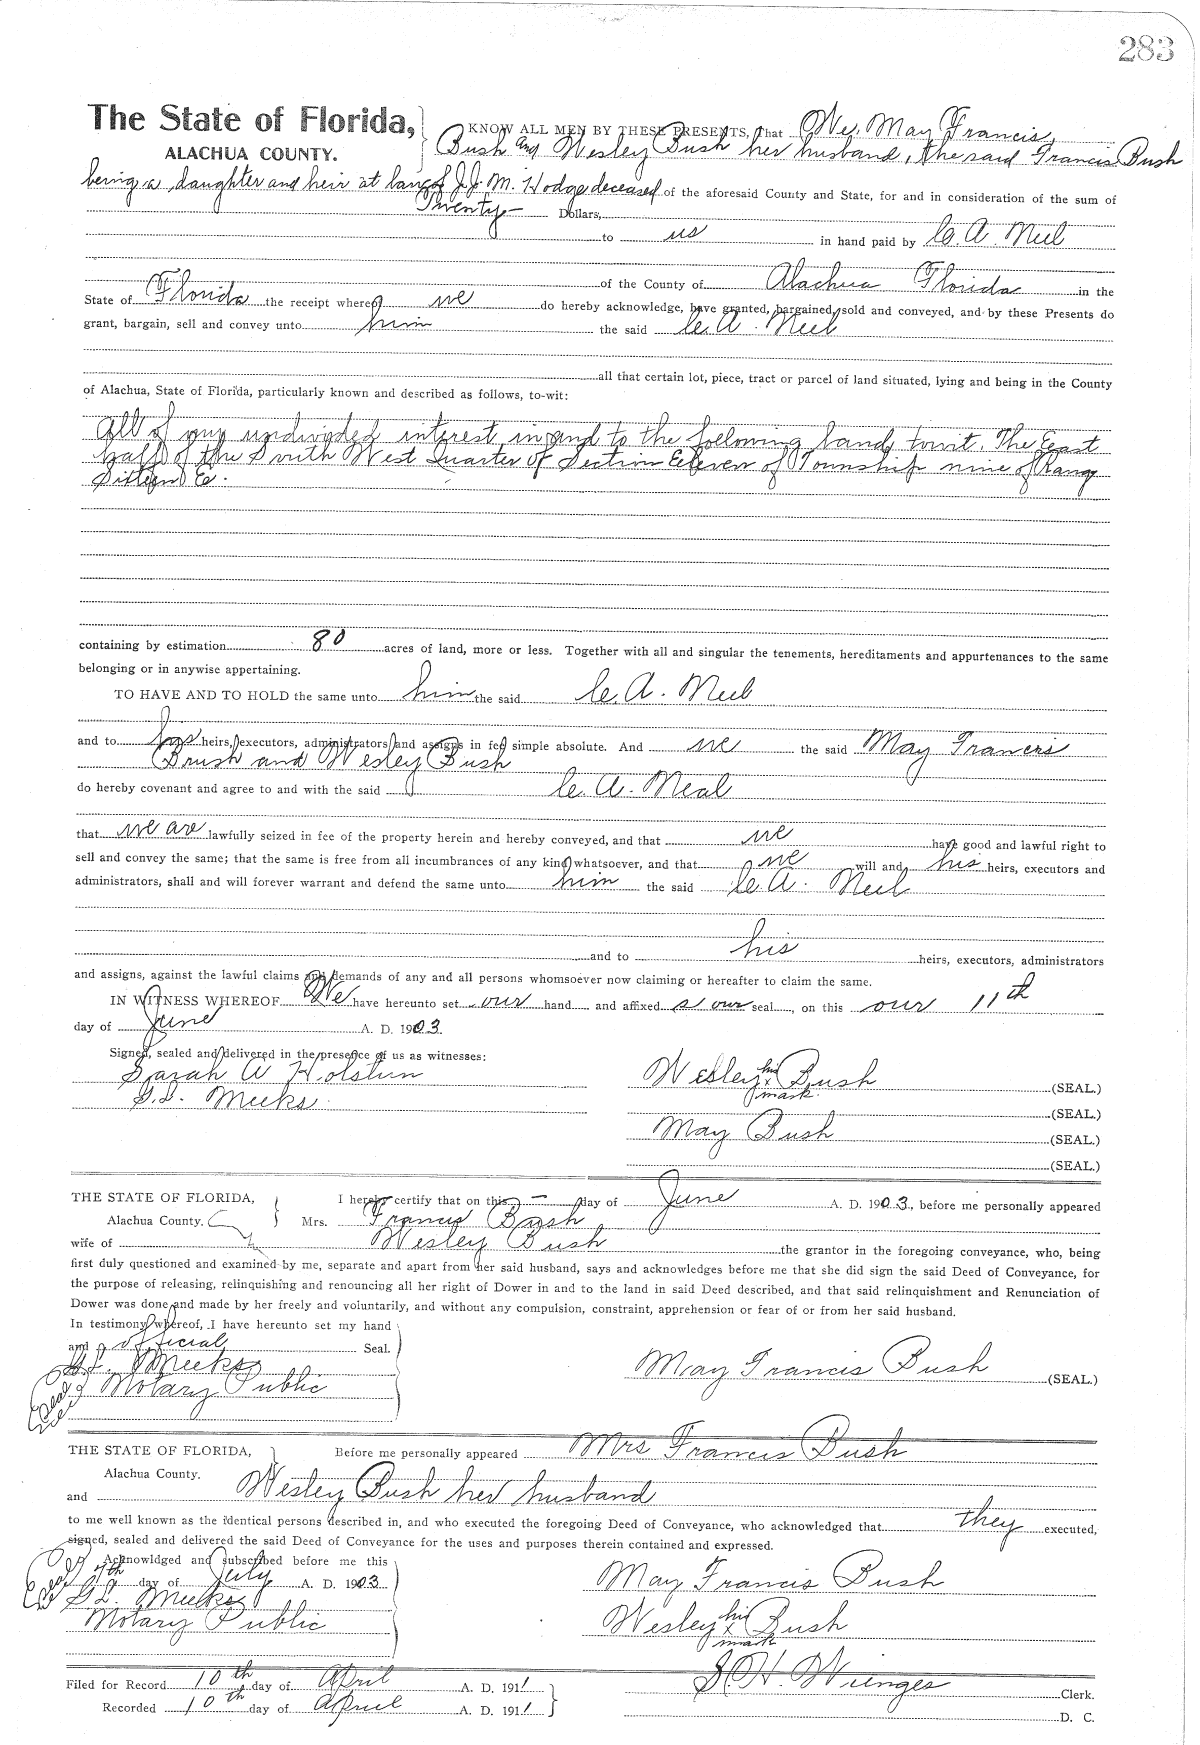 283
The State of Florida,
ALACHUA COUNTY.
KNOW ALL MEN BY THESE PRESENTS, That We, May Francis,
Bush and Wesley Bush her husband, the said Francis Bush
being a daughter and heir at law of J.J.M. Hodge deceased of the aforesaid County and State, for and in consideration of the sum of
Twenty — Dollars,
to us in hand paid by C. A. Neel
of the County of Alachua Florida in the
State of Florida the receipt whereof we do hereby acknowledge, have granted, bargained, sold and conveyed, and by these Presents do
grant, bargain, sell and convey unto him the said C. A. Neel
all that certain lot, piece, tract or parcel of land situated, lying and being in the County
of Alachua, State of Florida, particularly known and described as follows, to-wit:
All of my undivided interest in and to the following land, towit. The East
half of the South West Quarter of Section Eeleven of Township nine of Rang
Sixteen E.
containing by estimation 80 acres of land, more or less. Together with all and singular the tenements, hereditaments and appurtenances to the same
belonging or in anywise appertaining.
TO HAVE AND TO HOLD the same unto him the said C. A. Neel
and to his heirs, executors, administrators and assigns in fee simple absolute. And we the said May Francis
Brush and Wesley Bush
do hereby covenant and agree to and with the said C. A. Neal
that we are lawfully seized in fee of the property herein and hereby conveyed, and that we have good and lawful right to
sell and convey the same; that the same is free from all incumbrances of any kind whatsoever, and that we will and his heirs, executors and
administrators, shall and will forever warrant and defend the same unto him the said C. A. Neel
and to his heirs, executors, administrators
and assigns, against the lawful claims and demands of any and all persons whomsoever now claiming or hereafter to claim the same.
IN WITNESS WHEREOF We have hereunto set our hand and affixed s our seal, on this our 11th
day of June A. D. 1903.
Signed, sealed and delivered in the presence of us as witnesses:
Sarah A Holstun
G.L. Meeks
Wesley his x mark Bush (SEAL.)
(SEAL.)
May Bush (SEAL.)
(SEAL.)
THE STATE OF FLORIDA,
Alachua County.
I hereby certify that on this — day of June A. D. 1903., before me personally appeared
Mrs. Francis Bush
wife of Wesley Bush the grantor in the foregoing conveyance, who, being
first duly questioned and examined by me, separate and apart from her said husband, says and acknowledges before me that she did sign the said Deed of Conveyance, for
the purpose of releasing, relinquishing and renouncing all her right of Dower in and to the land in said Deed described, and that said relinquishment and Renunciation of
Dower was done and made by her freely and voluntarily, and without any compulsion, constraint, apprehension or fear of or from her said husband.
In testimony whereof, I have hereunto set my hand
and official Seal.
G.L. Meeks
Notary Public
May Francis Bush (SEAL.)
THE STATE OF FLORIDA,
Alachua County.
Before me personally appeared Mrs Francis Bush
and Wesley Bush her husband
to me well known as the identical persons described in, and who executed the foregoing Deed of Conveyance, who acknowledged that they executed,
signed, sealed and delivered the said Deed of Conveyance for the uses and purposes therein contained and expressed.
Acknowldged and subscribed before me this
7th day of July A. D. 1903
G.L. Meeks
Notary Public
May Francis Bush
Wesley his x mark Bush
Filed for Record 10th day of April A. D. 1911
Recorded 10th day of April A. D. 1911
S. H. Wienges Clerk.
D. C.